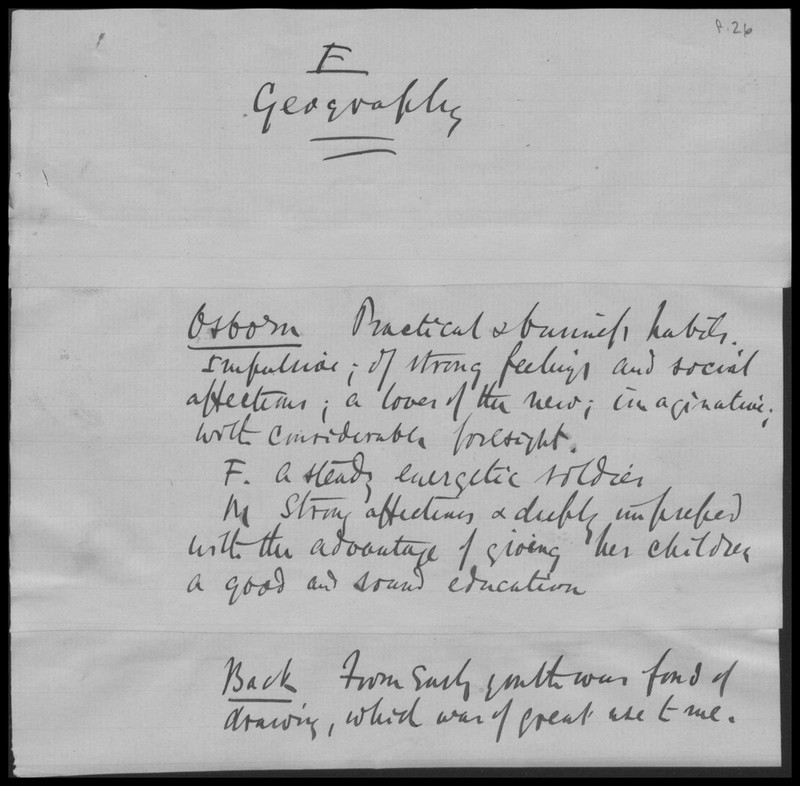 P. 26
F
Geography
Osborn Practical & business habits.
Impulsive; of strong feelings and social
affections; a lover of the new; imaginative;
with considerable foresight.
F. a steady energetic soldier
M Strong affections & deeply impressed
with the advantage of giving her children
a good and sound education
Back From early youth was fond of
drawing, which was of great use to me.